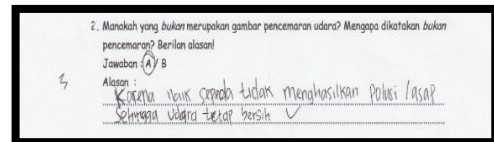 2. Manakah yang bukan merupakan gambar pencemaran udara? Mengapa dikatakan bukan
pencemaran? Berilan alasan!
Jawaban : A / B
3 Alasan :
Karena naik sepeda tidak menghasilkan polusi /asap
Sehingga udara tetap bersih ✓